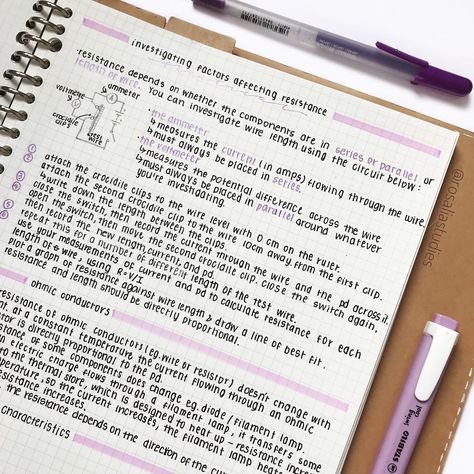 investigating factors affecting resistance
·resistance depends on whether the components are in series or parallel or
length of wire. You can investigate wire length using the circuit below:
voltmeter
ammeter
V
A
crocodile clips
test wire
·the ammeter
↳measures the current (in amps) flowing through the wire.
↳must always be placed in series.
·the voltmeter
↳measures the potential difference across the wire
↳must always be placed in parallel around whatever
you're investigating.
① attach the crocodile clips to the wire level with 0 cm on the ruler.
② attach the second crocodile clip to the wire 10cm away from the first clip.
↳write down the length between the clips.
③ close the switch, then record the current through the wire and the pd across it.
④ open the switch, then move the second crocodile clip, close the switch again,
then record the new length, current, and pd.
⑤ repeat this for a number of different length of the test wire.
use your measurements of current and pd to calculate resistance for each
length of wire, using R=V/I
plot a graph of resistance against wire length & draw a line of best fit.
resistance and length should be directly proportional.
ohmic conductors
resistance of ohmic conductors (eg. wire or resistor) doesn't change with
at a constant temperature, the current flowing through an ohmic
is directly proportional to the pd.
resistance of some components does change eg. diode / filament lamp.
electric charge flows through a filament lamp, it transfers some
to the thermal store, which is designed to heat up - resistance increases
temperature, so the current increases, the filament lamp heats
resistance increases.
the resistance depends on the direction of the
characteristics
@rosaliastudies
STABILO
swing cool